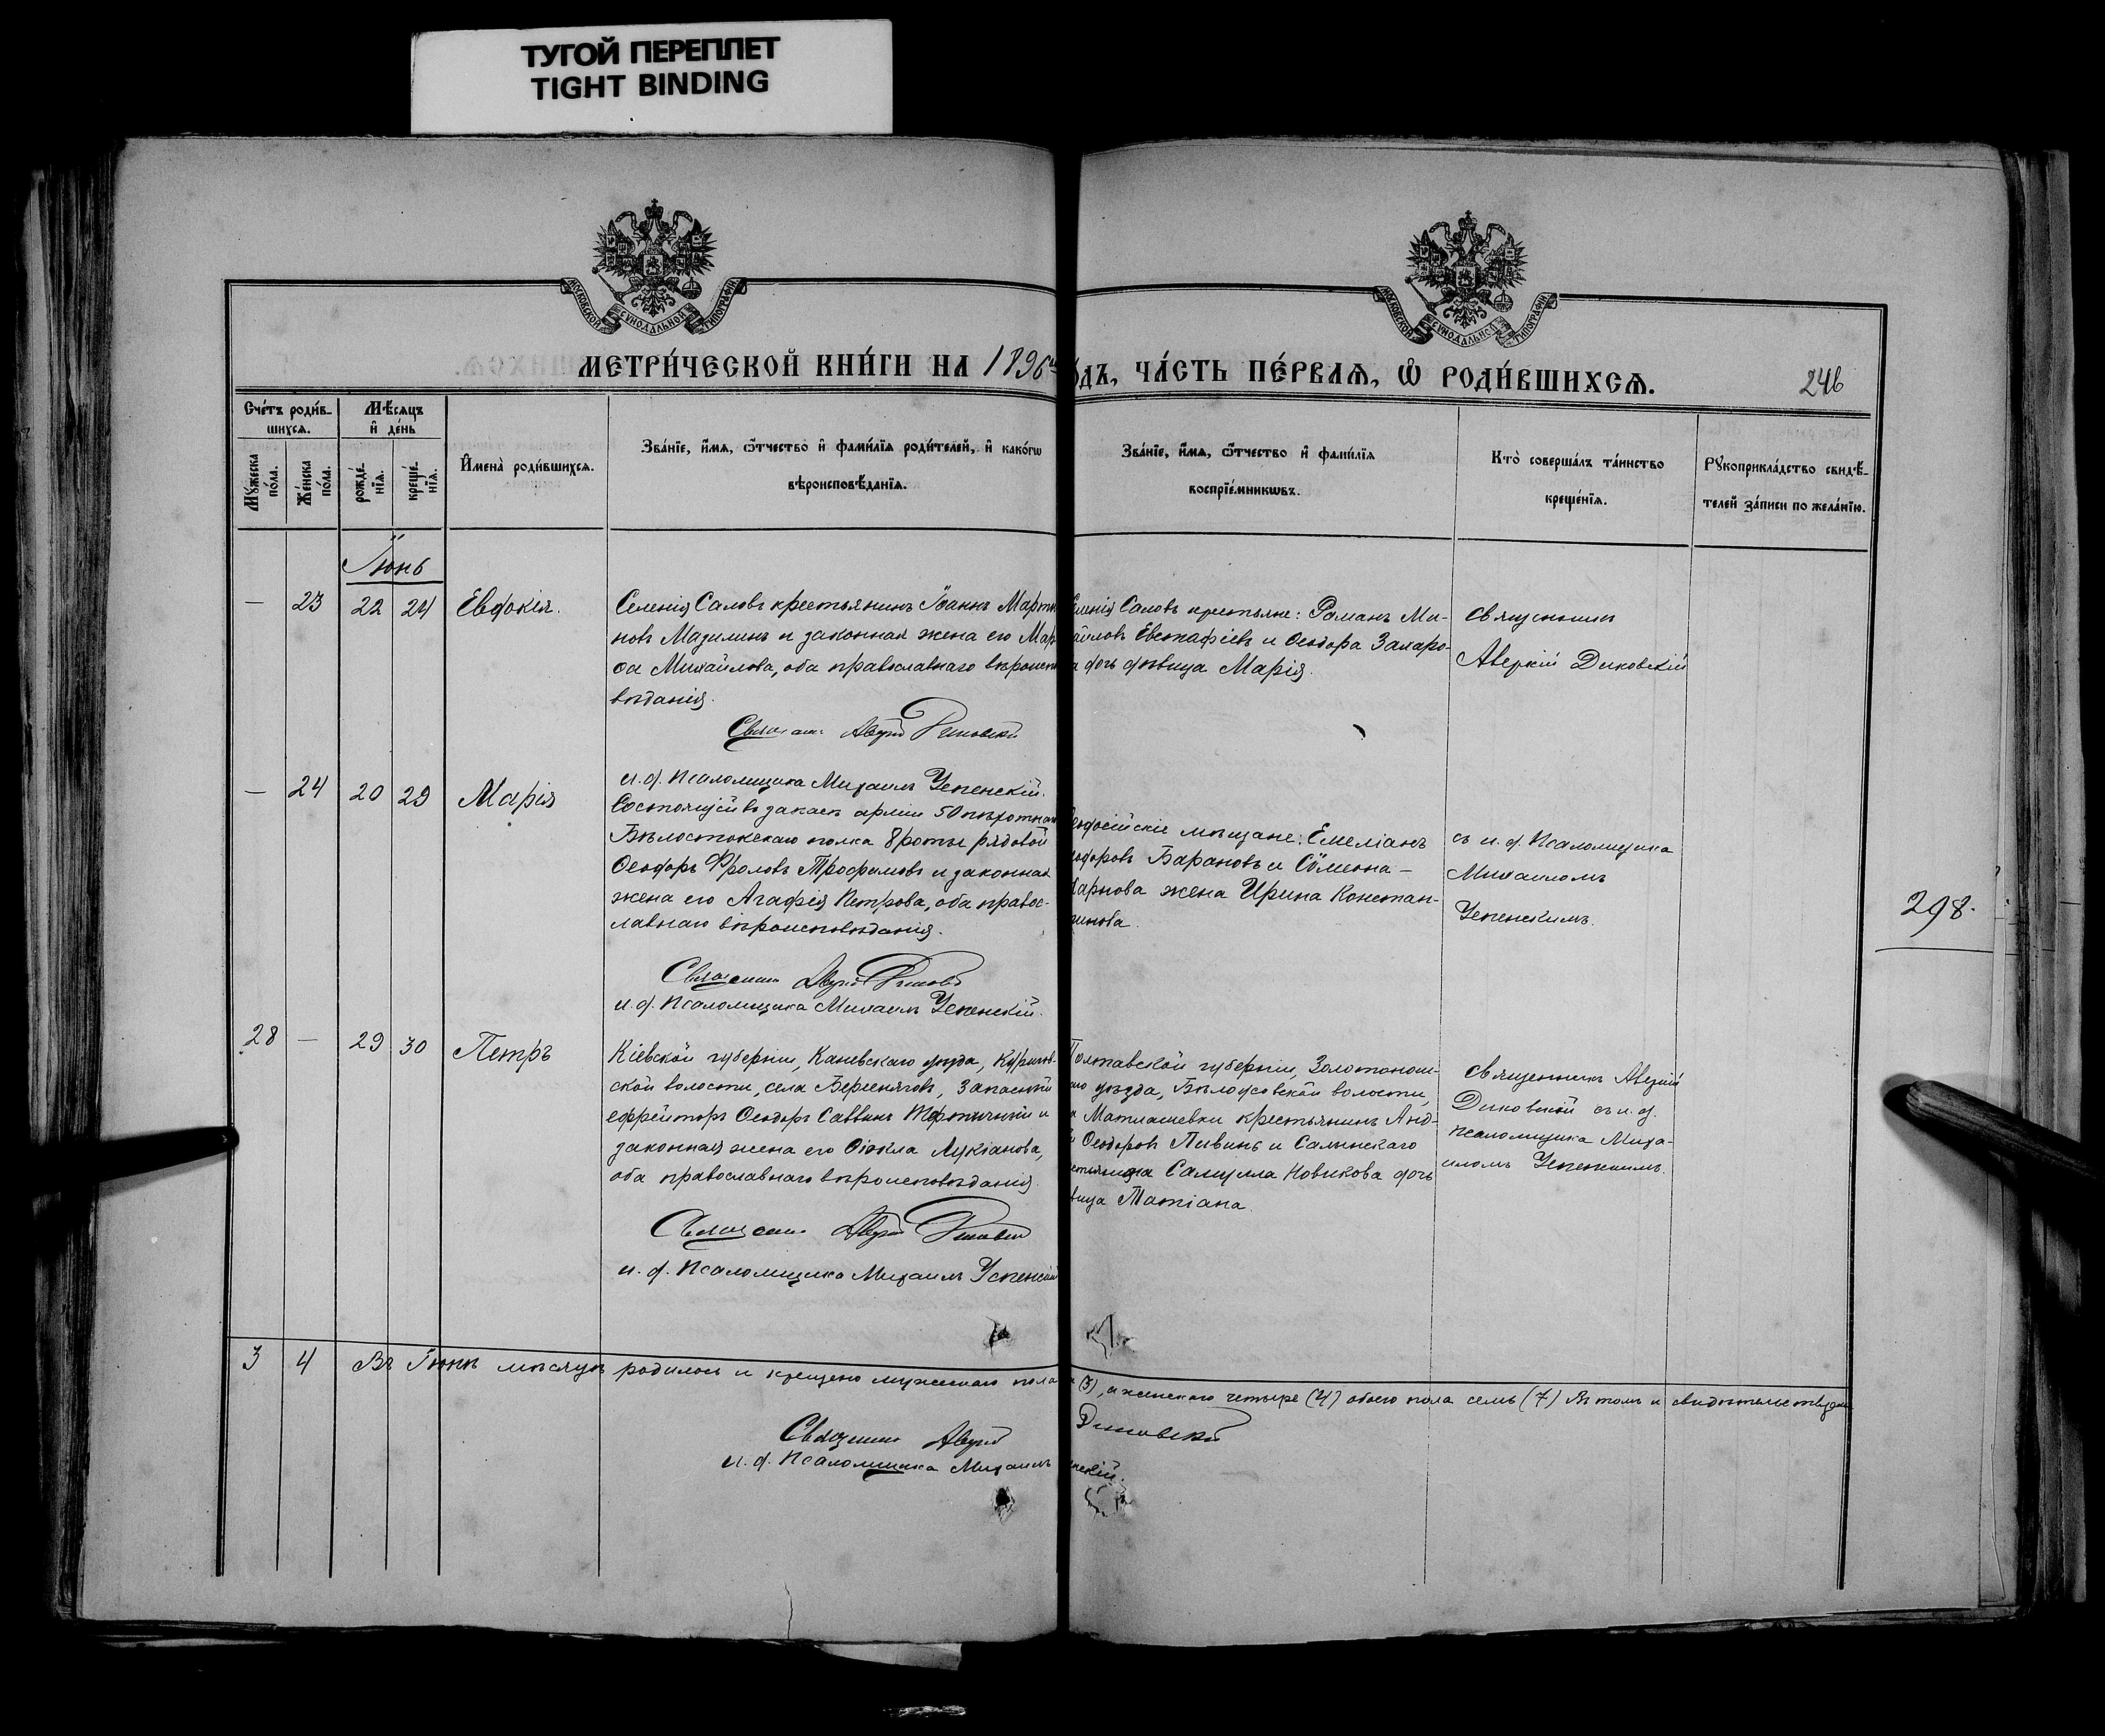 ТУГОЙ ПЕРЕПЛЕТ
TIGHT BINDING
МОСКОВСКОЙ СУНОДАЛЬНОЙ ТИПОГРАФІИ
МОСКОВСКОЙ СУНОДАЛЬНОЙ ТИПОГРАФІИ
МЕТРИ́ЧЕСКОЙ КНИ́ГИ НА 1896
о́дъ, ЧА́СТЬ ПЕ́РВАѦ, Ѡ҆ РОДИ́ВШИХСѦ.
246
Сче́тъ роди́в-
шихсѧ.
Мѣ́сѧцъ
и҆ де́нь
Мꙋ́жеска
по́ла.
Же́нска
по́ла.
рожде́-
нїѧ.
креще́-
нїѧ.
И҆мена̀ роди́вшихсѧ.
Зва́нїе, и҆́мѧ, ѻ҆́тчество и҆ фами́лїѧ роди́телей, и҆ како́гѡ
вѣроисповѣ́данїѧ.
Зва́нїе, и҆́мѧ, ѻ҆́тчество и҆ фами́лїѧ
воспрїе́мникѡвъ.
Кто̀ соверша́лъ та́инство
креще́нїѧ.
Рꙋкоприкла́дство свидѣ́-
телей за́писи по жела́нїю.
Іюнь
— 23 22 24 Евдокія.
Селенія Саловъ крестьянинъ Іоаннъ Марти
новъ Мазилинъ и законная жена его Мар
ѳа Михайлова, оба православнаго вѣроиспо
вѣданія.
Священ Аверкій Диковскій
и. д. Псаломщика Михаилъ Успенскій.
еленія Саловъ крестьяне: Романъ Ми-
айловъ Евстафіевъ и Ѳеодора Захаро-
а дочь дѣвица Марія.
Священникъ
Аверкій Диковскій
— 24 20 29 Марія
Состоящій въ запасѣ арміи 50 пѣхотнаго
Бѣлостокскаго полка 8 роты рядовой
Ѳеодоръ Фроловъ Трофимовъ и законная
жена его Агафія Петрова, оба правос-
лавнаго вѣроисповѣданія.
Священникъ Аверкій Диковс
и. д. Псаломщика Михаилъ Успенскій.
еодосійскіе мѣщане: Емеліанъ
еодоровъ Барановъ и Сѵмеона —
Карпова жена Ирина Констан-
тинова.
съ и. д. Псаломщика
Михаиломъ
Успенскимъ.
298.
28 — 29 30 Петръ
Кіевской губерніи, Каневскаго уѣзда,
ской волости, села Береняговъ, Запасный
ефрейторъ Ѳеодоръ Саввинъ и
законная жена его Ѳекла Лукіанова,
оба православнаго вѣроисповѣданія.
Священ Аверкій Диковскій
и. д. Псаломщика Михаилъ Успенскій
Полтавской губерніи, Золотонош-
аго уѣзда, Бѣлоусовской волости,
а Матлашевки крестьянинъ Анд-
й Ѳеодоровъ Пивинь и Салынскаго
естьянина Самуила Новикова дочь
вица Татіана.
Священникъ Аверкій
Диковскій съ и. д.
псаломщика Миха-
иломъ Успенскимъ.
3 4 Въ Іюнѣ мѣсяцѣ родилось и крещено мужескаго пола
(3), а женскаго четыре (4) обоего пола семь (7) Въ томъ и свидѣтельствуемъ
Священникъ Аверкій
Диковскій
и. д. Псаломщика Михаилъ
нскій.